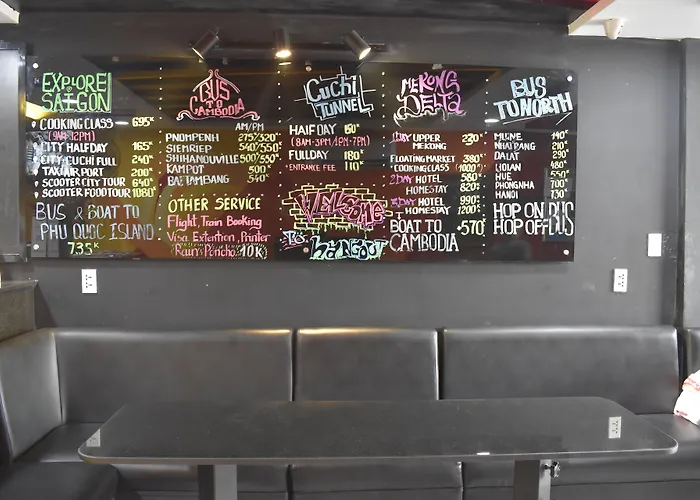 EXPLORE
SAIGON
COOKING CLASS 695K
(9AM-12PM)
CITY HALFDAY 165K
CITY-CUCHI FULL 240K
TAXI AIRPORT 200K
SCOOTER CITY TOUR 640K
SCOOTER FOOD TOUR 1080K
BUS & BOAT TO
PHU QUOC ISLAND
735K
BUS
TO
CAMBODIA
AM/PM
PNOMPENH 275K/320K
SIEMRIEP 540K/550K
SHIHANOUVILLE 500K/550K
KAMPOT 500K
BATTAMBANG 540K
OTHER SERVICE
Flight, Train Booking
Visa Extention, Printer
Rain Poncho 10K
CuChi
TUNNEL
HALF DAY 80K
(8AM-3PM/1PM-7PM)
FULLDAY 180K
ENTRANCE FEE 110K
WELCOME
To
HANGOUT
MEKONG
DELTA
1DAY UPPER 230K
MEKONG
FLOATING MARKET 380K
COOKING CLASS (1000K)
2DAY HOTEL 580K
HOMESTAY 820K
3DAY HOTEL 990K
HOMESTAY 1200K
BOAT TO
CAMBODIA 570K
BUS
TO NORTH
MUINE 140K
NHATRANG 210K
DALAT 290K
HOIAN 480K
HUE 550K
PHONGNHA 700K
HANOI 730K
HOP ON BUS
HOP OFF